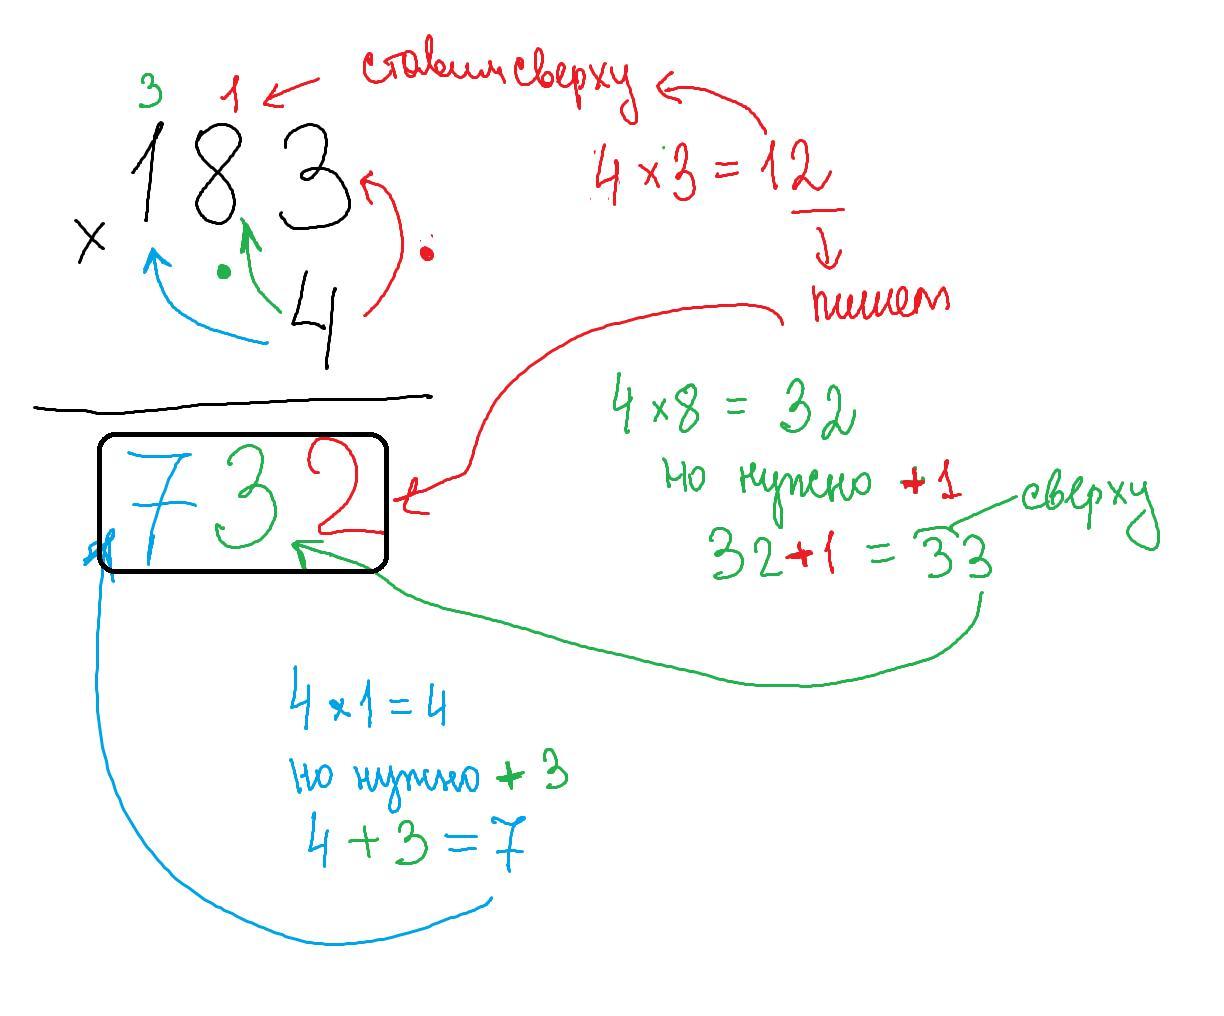 3 1
ставим сверху
183
4 × 3 = 12
×
4
пишем
4 × 8 = 32
но нужно +1
сверху
32 + 1 = 33
732
4 × 1 = 4
но нужно + 3
4 + 3 = 7